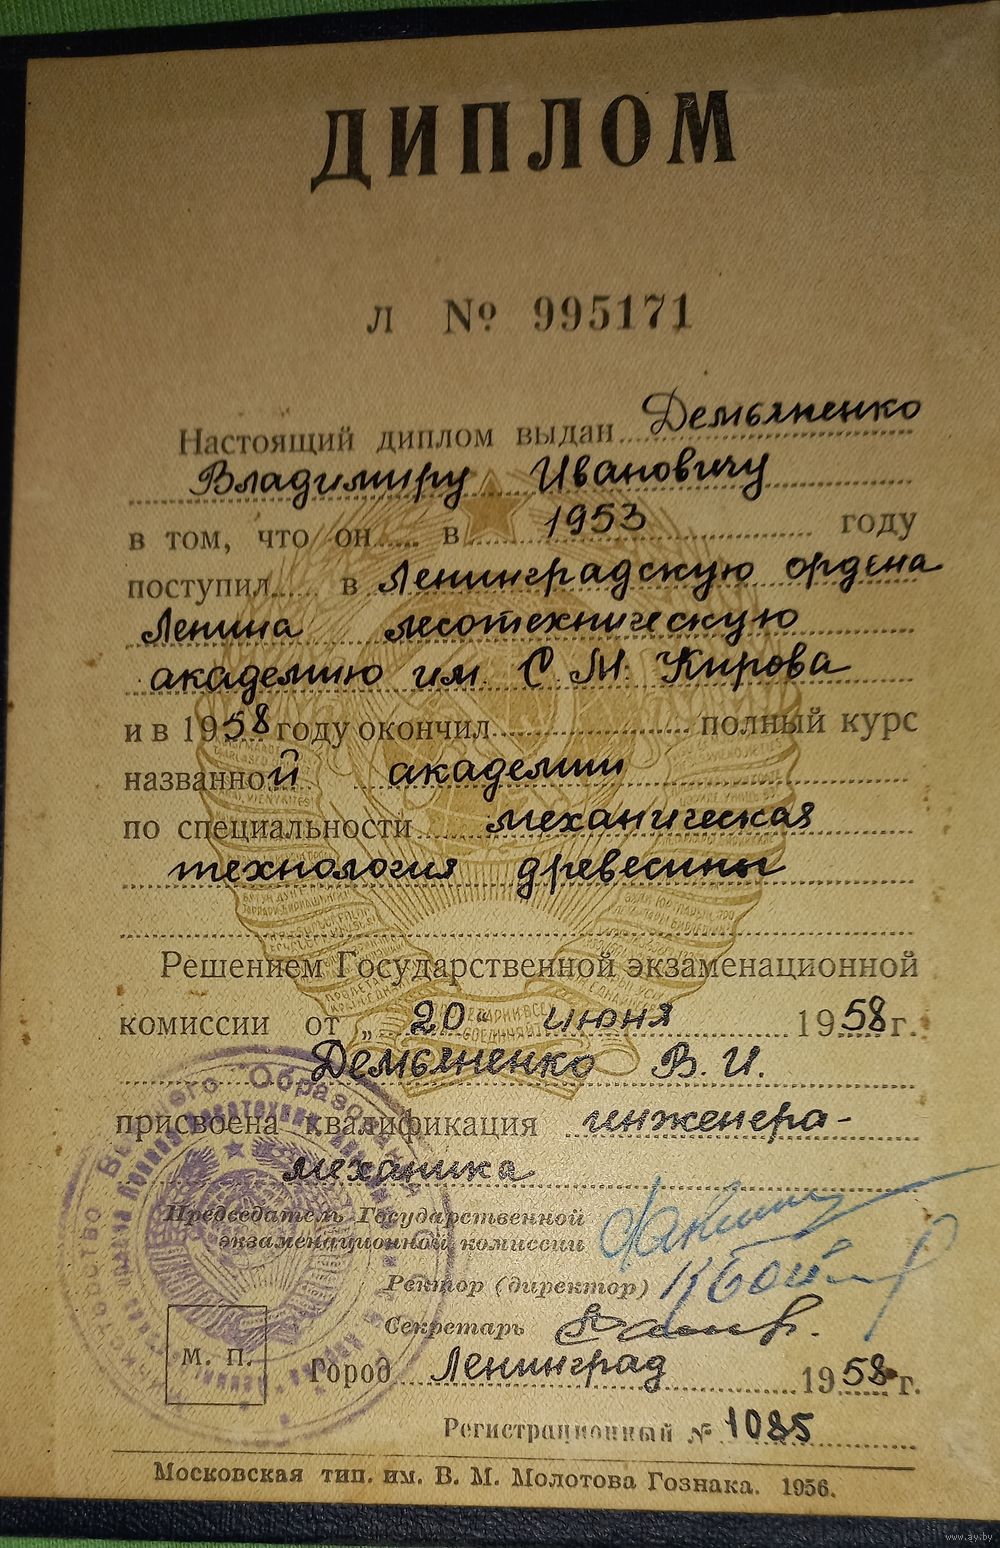 ДИПЛОМ
Л № 995171
Настоящий диплом выдан Демьяненко
Владимиру Ивановичу
в том, что он в 1953 году
поступил в Ленинградскую ордена
Ленина лесотехническую
академию им. С. М. Кирова
и в 1958 году окончил полный курс
названной академии
по специальности механическая
технология древесины
Решением Государственной экзаменационной
комиссии от „20" июня 1958 г.
Демьяненко В. И.
присвоена квалификация инженера-
механика
Председатель Государственной
экзаменационной комиссии
Ректор (директор)
Секретарь
М. П.
Город Ленинград 1958 г.
Регистрационный № 1085
Московская тип. им. В. М. Молотова Гознака. 1956.
www.ay.by